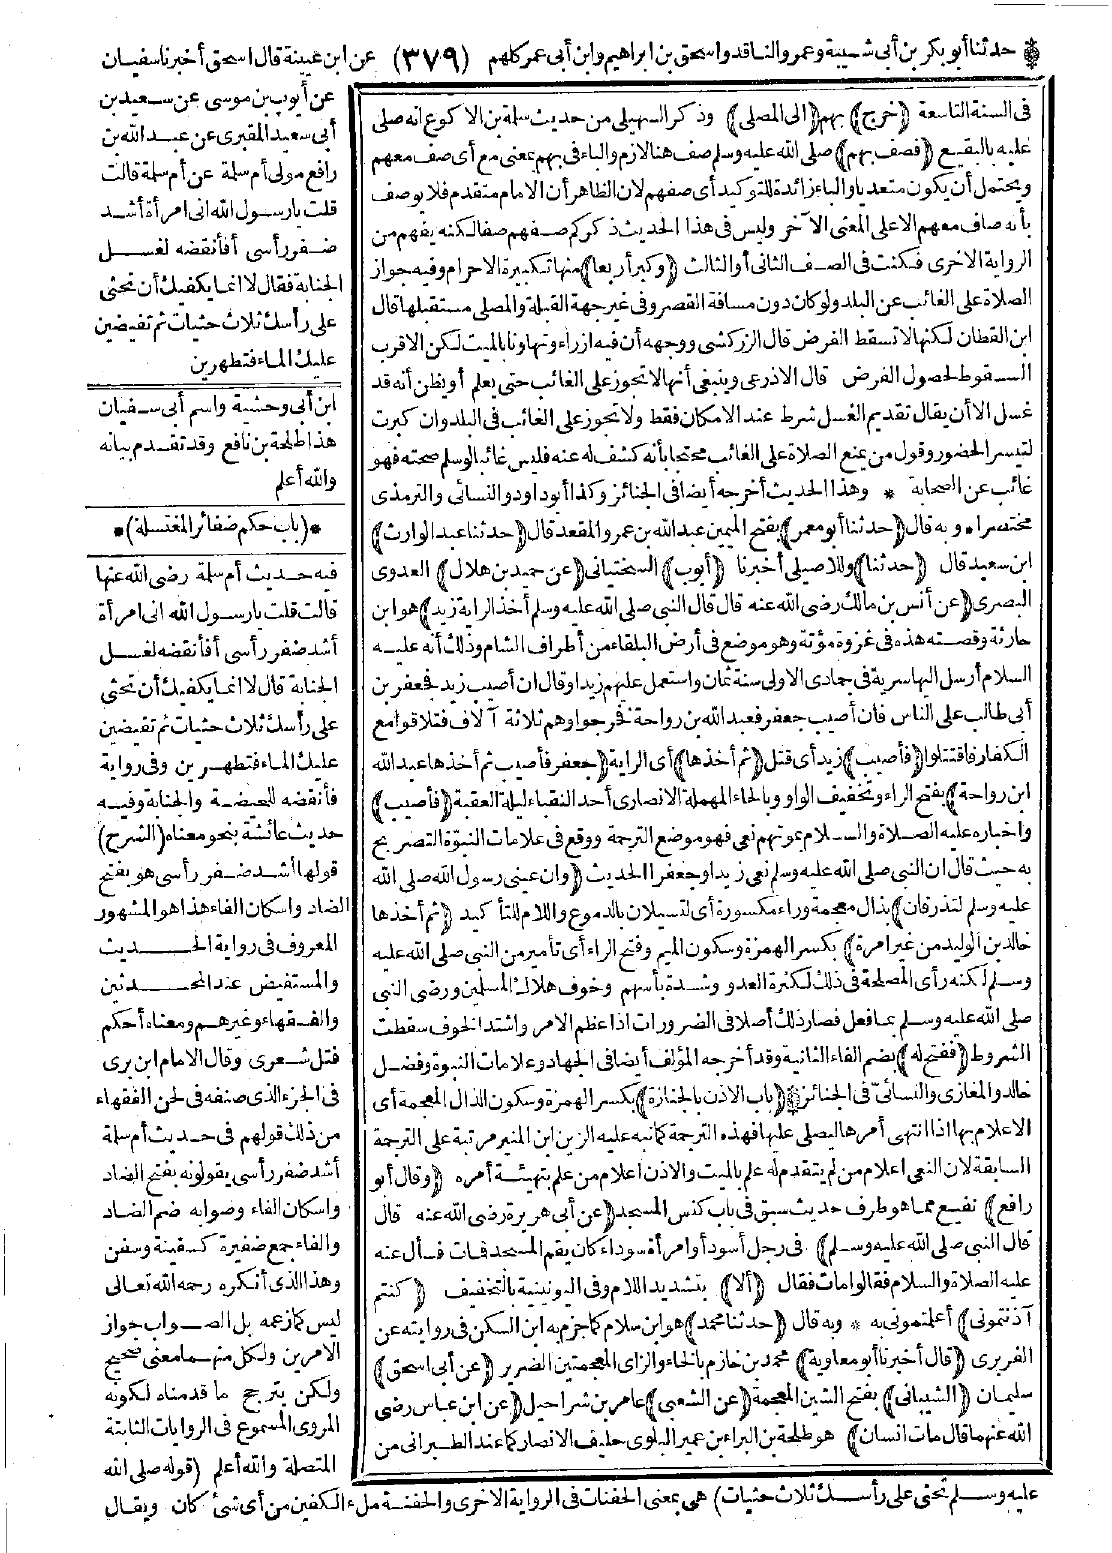 حدثنا أبو بكر بن أبي شيبة وعمرو الناقد واسحق بن ابراهيم وابن أبي عمر كلهم (٣٧٩) عن ابن عيينة قال اسحق أخبرنا سفيان
عن أيوب بن موسى عن سعيد بن
أبي سعيد المقبرى عن عبد الله بن
رافع مولى أم سلمة عن أم سلمة قالت
قلت يا رسول الله انى امرأة أشد
ضفر رأسى أفأنقضه لغسل
الجنابة فقال لا انما يكفيك أن تحثى
على رأسك ثلاث حثيات ثم تفيضين
عليك الماء فتطهرين
ابن أبي وحشية واسم أبي سفيان
هذا طلحة بن نافع وقد تقدم بيانه
والله أعلم
*(باب حكم ضفائر المغتسلة)*
فيه حديث أم سلمة رضى الله عنها
قالت قلت يا رسول الله انى امرأة
أشد ضفر رأسى أفأنقضه لغسل
الجنابة قال لا انما يكفيك أن تحثى
على رأسك ثلاث حثيات ثم تفيضين
عليك الماء فتطهرين وفى رواية
فأنقضه للحيضة والجنابة وفيه
حديث عائشة بنحو معناه (الشرح)
قولها أشد ضفر رأسى هو بفتح
الضاد واسكان الفاء هذا هو المشهور
المعروف فى رواية الحديث
والمستفيض عند المحدثين
والفقهاء وغيرهم ومعناه أحكم
فتل شعرى وقال الامام ابن برى
فى الجزء الذى صنفه فى لحن الفقهاء
من ذلك قولهم فى حديث أم سلمة
أشد ضفر رأسى يقولونه بفتح الضاد
واسكان الفاء وصوابه ضم الضاد
والفاء جمع ضفيرة كسفينة وسفن
وهذا الذى أنكره رحمه الله تعالى
ليس كما زعمه بل الصواب جواز
الامرين ولكل منهما معنى صحيح
ولكن يترجح ما قدمناه لكونه
المروى المسموع فى الروايات الثابتة
المتصلة والله أعلم (قوله صلى الله
عليه وسلم تحثى على رأسك ثلاث حثيات) هى بمعنى الحفنات فى الرواية الاخرى والحفنة ملء الكفين من أى شئ كان ويقال
فى السنة التاسعة (خرج) بهم (الى المصلى) وذكر السهيلى من حديث سلمة بن الاكوع انه صلى
عليه بالبقيع (فصف بهم) صلى الله عليه وسلم صف هنا لازم والباء فى بهم بمعنى مع أى صف معهم
ويحتمل أن يكون متعديا والباء زائدة للتوكيد أى صفهم لان الظاهر أن الامام متقدم فلا يوصف
بأنه صاف معهم الا على المعنى الآخر وليس فى هذا الحديث ذكر كم صفهم صفا لكنه يفهم من
الرواية الاخرى فكنت فى الصف الثانى أو الثالث (وكبر أربعا) منها تكبيرة الاحرام وفيه جواز
الصلاة على الغائب عن البلد ولو كان دون مسافة القصر وفى غير جهة القبلة والمصلى مستقبلها قال
ابن القطان لكنها لا تسقط الفرض قال الزركشى ووجهه أن فيه ازراء وتهاونا بالميت لكن الاقرب
السقوط لحصول الفرض قال الاذرعى وينبغى أنها لا تجوز على الغائب حتى يعلم أو يظن أنه قد
غسل الا أن يقال تقديم الغسل شرط عند الامكان فقط ولا تجوز على الغائب فى البلد وان كبرت
لتيسر الحضور وقول من يمنع الصلاة على الغائب محتجا بأنه كشف له عنه فليس غائبا لو سلم صحته فهو
غائب عن الصحابة * وهذا الحديث أخرجه أيضا فى الجنائز وكذا أبو داود والنسائى والترمذى
مختصرا * وبه قال (حدثنا أبو معمر) بفتح الميمين عبد الله بن عمرو المقعد قال (حدثنا عبد الوارث)
ابن سعيد قال (حدثنا) وللاصيلى أخبرنا (أيوب) السختيانى (عن حميد بن هلال) العدوى
البصرى (عن أنس بن مالك رضى الله عنه قال قال النبى صلى الله عليه وسلم أخذ الراية زيد) هو ابن
حارثة وقصته هذه فى غزوة مؤتة وهو موضع فى أرض البلقاء من أطراف الشام وذلك أنه عليه
السلام أرسل اليها سرية فى جمادى الاولى سنة ثمان واستعمل عليهم زيدا وقال ان أصيب زيد فجعفر بن
أبى طالب على الناس فان أصيب جعفر فعبد الله بن رواحة فخرجوا وهم ثلاثة آلاف فتلاقوا مع
الكفار فاقتتلوا (فأصيب) زيد أى قتل (ثم أخذها) أى الراية (جعفر فأصيب ثم أخذها عبد الله
ابن رواحة) بفتح الراء وتخفيف الواو وبالحاء المهملة الانصارى أحد النقباء ليلة العقبة (فأصيب)
واخباره عليه الصلاة والسلام بموتهم نعى فهو موضع الترجمة ووقع فى علامات النبوة التصريح
به حيث قال ان النبى صلى الله عليه وسلم نعى زيدا وجعفرا الحديث (وان عينى رسول الله صلى الله
عليه وسلم لتذرفان) بذال معجمة وراء مكسورة أى لتسيلان بالدموع واللام للتأكيد (ثم أخذها
خالد بن الوليد من غير امرة) بكسر الهمزة وسكون الميم وفتح الراء أى تأمير من النبى صلى الله عليه
وسلم لكنه رأى المصلحة فى ذلك لكثرة العدو وشدة بأسهم وخوف هلاك المسلمين ورضى النبى
صلى الله عليه وسلم بما فعل فصار ذلك أصلا فى الضرورات اذا عظم الامر واشتد الخوف سقطت
الشروط (ففتح له) بضم الفاء الثانية وقد أخرجه المؤلف أيضا فى الجهاد وعلامات النبوة وفضل
خالد والمغازى والنسائى فى الجنائز (باب الاذن بالجنازة) بكسر الهمزة وسكون الذال المعجمة أى
الاعلام بها اذا انتهى أمرها ليصلى عليها فهذه الترجمة كما نبه عليه الزين ابن المنير مرتبة على الترجمة
السابقة لان النعى اعلام من لم يتقدم له علم بالميت والاذن اعلام من علم بتهيئة أمره (وقال أبو
رافع) نفيع مما هو طرف حديث سبق فى باب كنس المسجد (عن أبى هريرة رضى الله عنه قال
قال النبى صلى الله عليه وسلم) فى رجل أسود أو امرأة سوداء كان يقم المسجد فمات فسأل عنه
عليه الصلاة والسلام فقالوا مات فقال (ألا) بتشديد اللام وفى اليونينية بالتخفيف (كنتم
آذنتمونى) أعلمتمونى به * وبه قال (حدثنا محمد) هو ابن سلام كما جزم به ابن السكن فى روايته عن
الفربرى (قال أخبرنا أبو معاوية) محمد بن خازم بالخاء والزاى المعجمتين الضرير (عن أبى اسحق)
سليمان (الشيبانى) بفتح الشين المعجمة (عن الشعبى) عامر بن شراحيل (عن ابن عباس رضى
الله عنهما قال مات انسان) هو طلحة بن البراء بن عمير البلوى حليف الانصار كما عند الطبرانى من